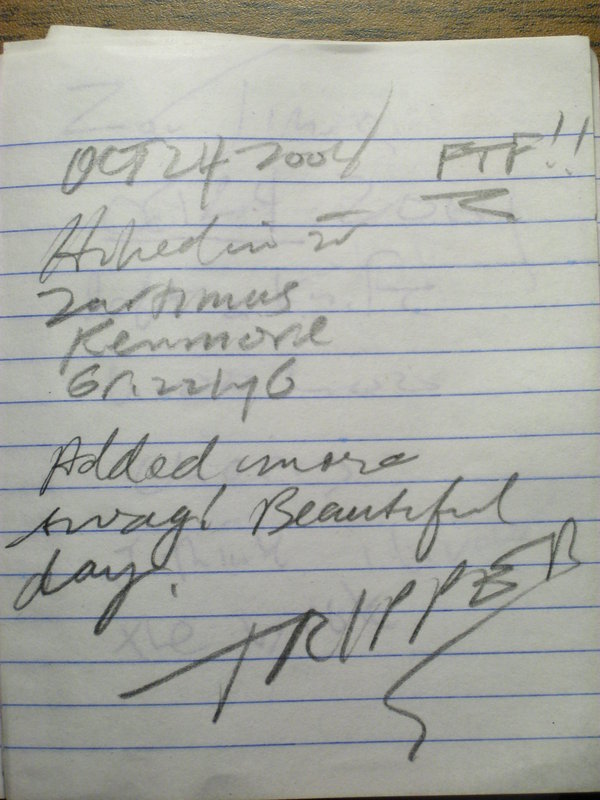 OCT 24 2004 FTF!!
Hiked in w
Zartimus
Kenmore
GrizzlyG
Added more
swag! Beautiful
day.
TRIPPER